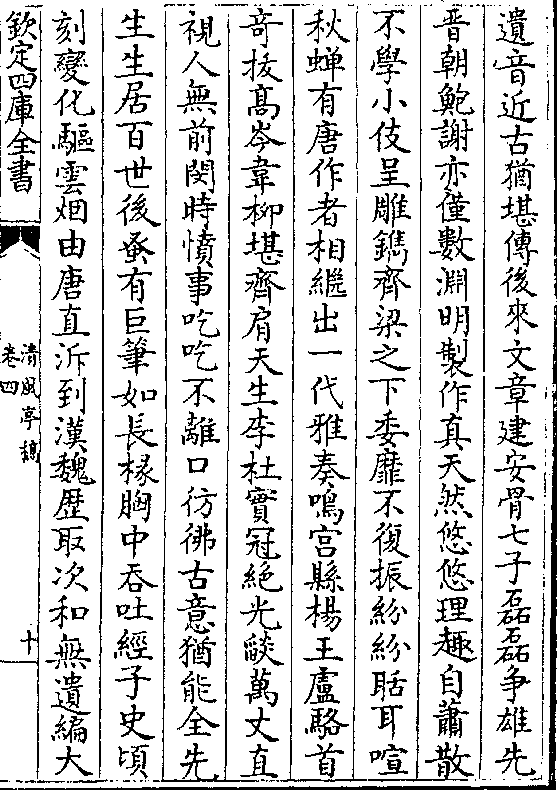 遺音近古猶堪傳後來文章建安骨七子磊磊争雄先
晋朝鮑謝亦僅數淵明製作真天然悠悠理趣自蕭散
不學小伎呈雕鐫齊梁之下委靡不復振紛紛聒耳喧
秋蟬有唐作者相繼出一代雅奏鳴宫縣楊王盧駱首
竒拔髙岑韋柳堪齊肩天生李杜實冠絶光燄萬丈直
視人無前閔時憤事吃吃不離口彷彿古意猶能全先
生生居百世後蚤有巨筆如長椽胸中吞吐經子史頃
刻變化驅雲烟由唐直泝到漢魏歴取次和無遺編大
欽定四庫全書
清風亭稿
卷四
十